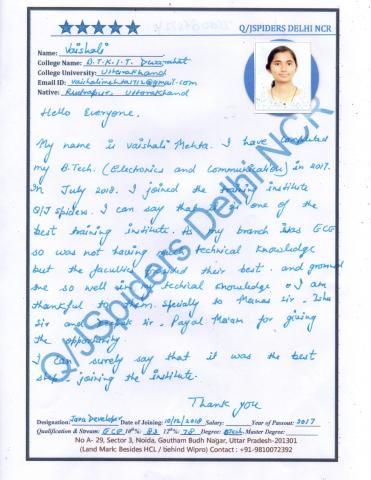 Q/JSPIDERS DELHI NCR
Name: Vaishali
College Name: B.T.K.I.T. Dwarahat
College University: Uttarakhand
Email ID:
Native: Rudrapur, Uttarakhand
Hello Everyone,
My name is Vaishali Mehta. I have completed
my B.Tech. (Electronics and Communication) in 2017.
In July 2018. I joined the training institute
Q/J Spiders. I can say that it is one of the
best training institute. As my branch was ECE
so was not having much technical knowledge
but the faculties provided their best. and groomed
me so well in my technical knowledge. I am
thankful to them. Specially to Manas Sir. Isha
Sir and Deepak Sir. Payal Ma'am for giving
the opportunity.
I can surely say that it was the best
step joining the institute.
Thank you
Q/JSpiders Delhi NCR
Designation: Java Developer Date of Joining: 10/12/2018 Salary: Year of Passout: 2017
Qualification & Stream: ECE 10th: 83 12th: 78 Degree: BTech. Master Degree:
No A- 29, Sector 3, Noida, Gautham Budh Nagar, Uttar Pradesh-201301
(Land Mark: Besides HCL / behind Wipro) Contact : +91-9810072392